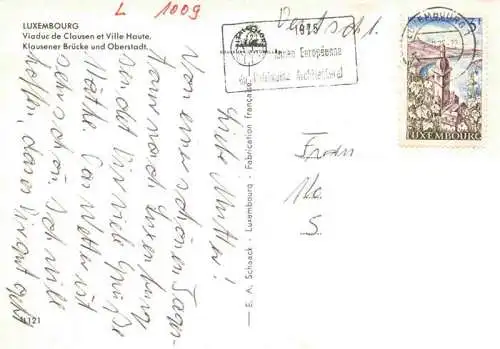 L 1009
LUXEMBOURG
Viaduc de Clausen et Ville Haute.
Klausener Brücke und Oberstadt.
1975
Année Européenne
du Patrimoine Architectural
LUXEMBOURG
LUXEMBOURG
Liebe Mutter!
Von einer schönen Tages-
tour nach Luxemburg
sendet Dir viele Grüße
Käthe. Das Wetter ist
sehr schön. Ich will
hoffen, dass Dir gut geht
Frau
M.
S.
— E. A. Schaack - Luxembourg - Fabrication française
121